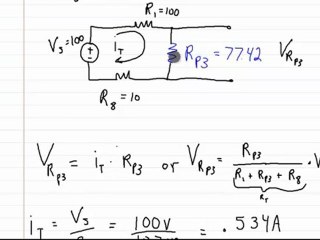 R₁=100
Vₛ=100
i_T
R_P3 = 77.42
V_RP3
R₈ = 10
V_RP3 = i_T · R_P3 or V_RP3 = R_P3 / (R₁ + R_P3 + R₈) · V
R_T
i_T = Vₛ / = 100V / = .534A